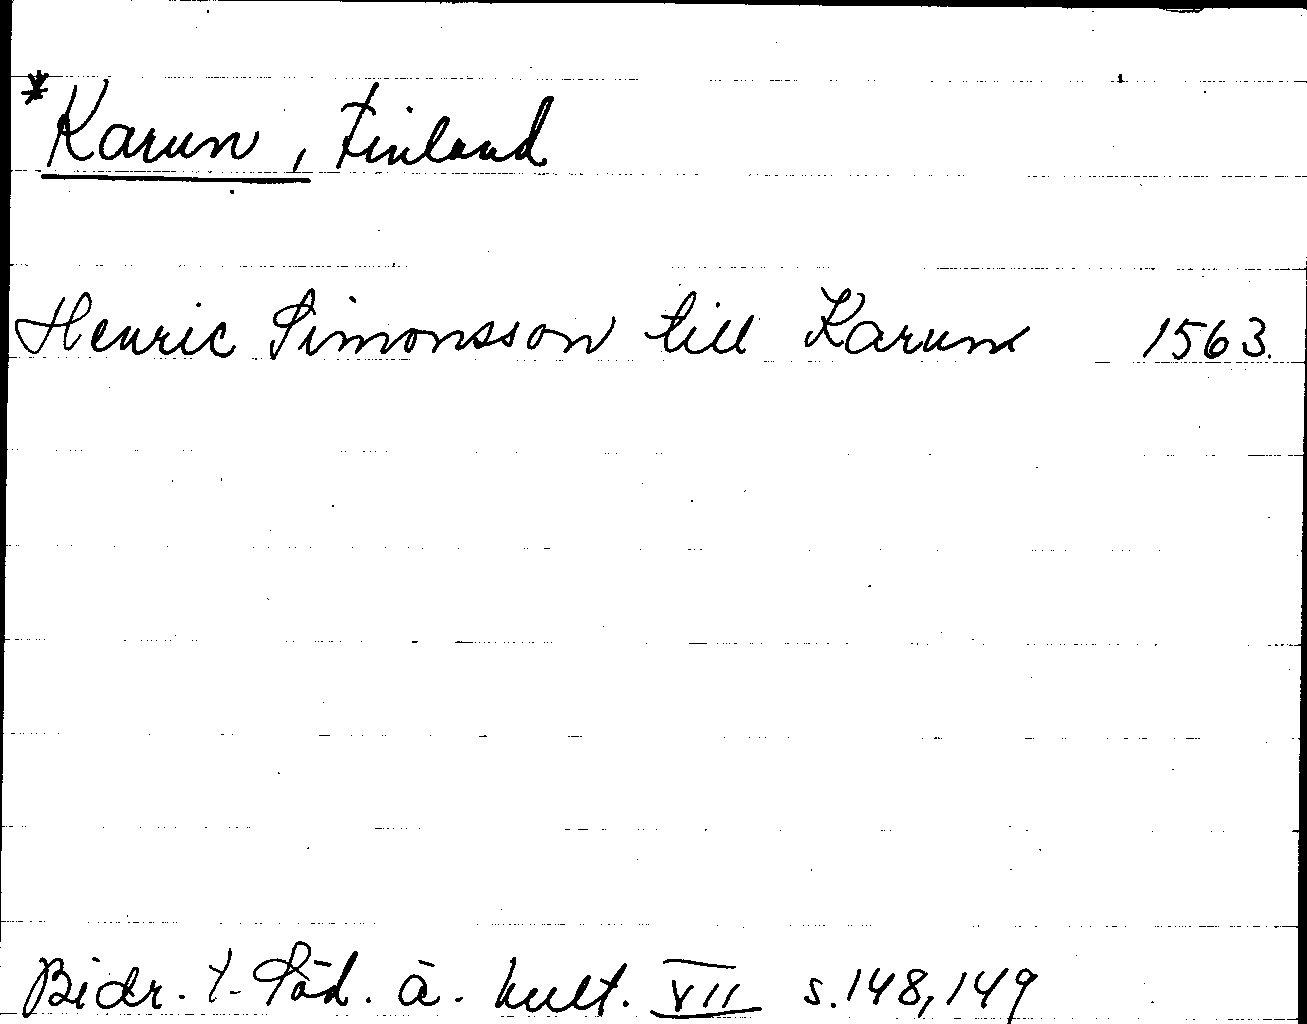 *Karun, Finland
Henric Simonsson till Karuna 1563.
Bidr. t. Söd. ä. kult. VII s. 148, 149